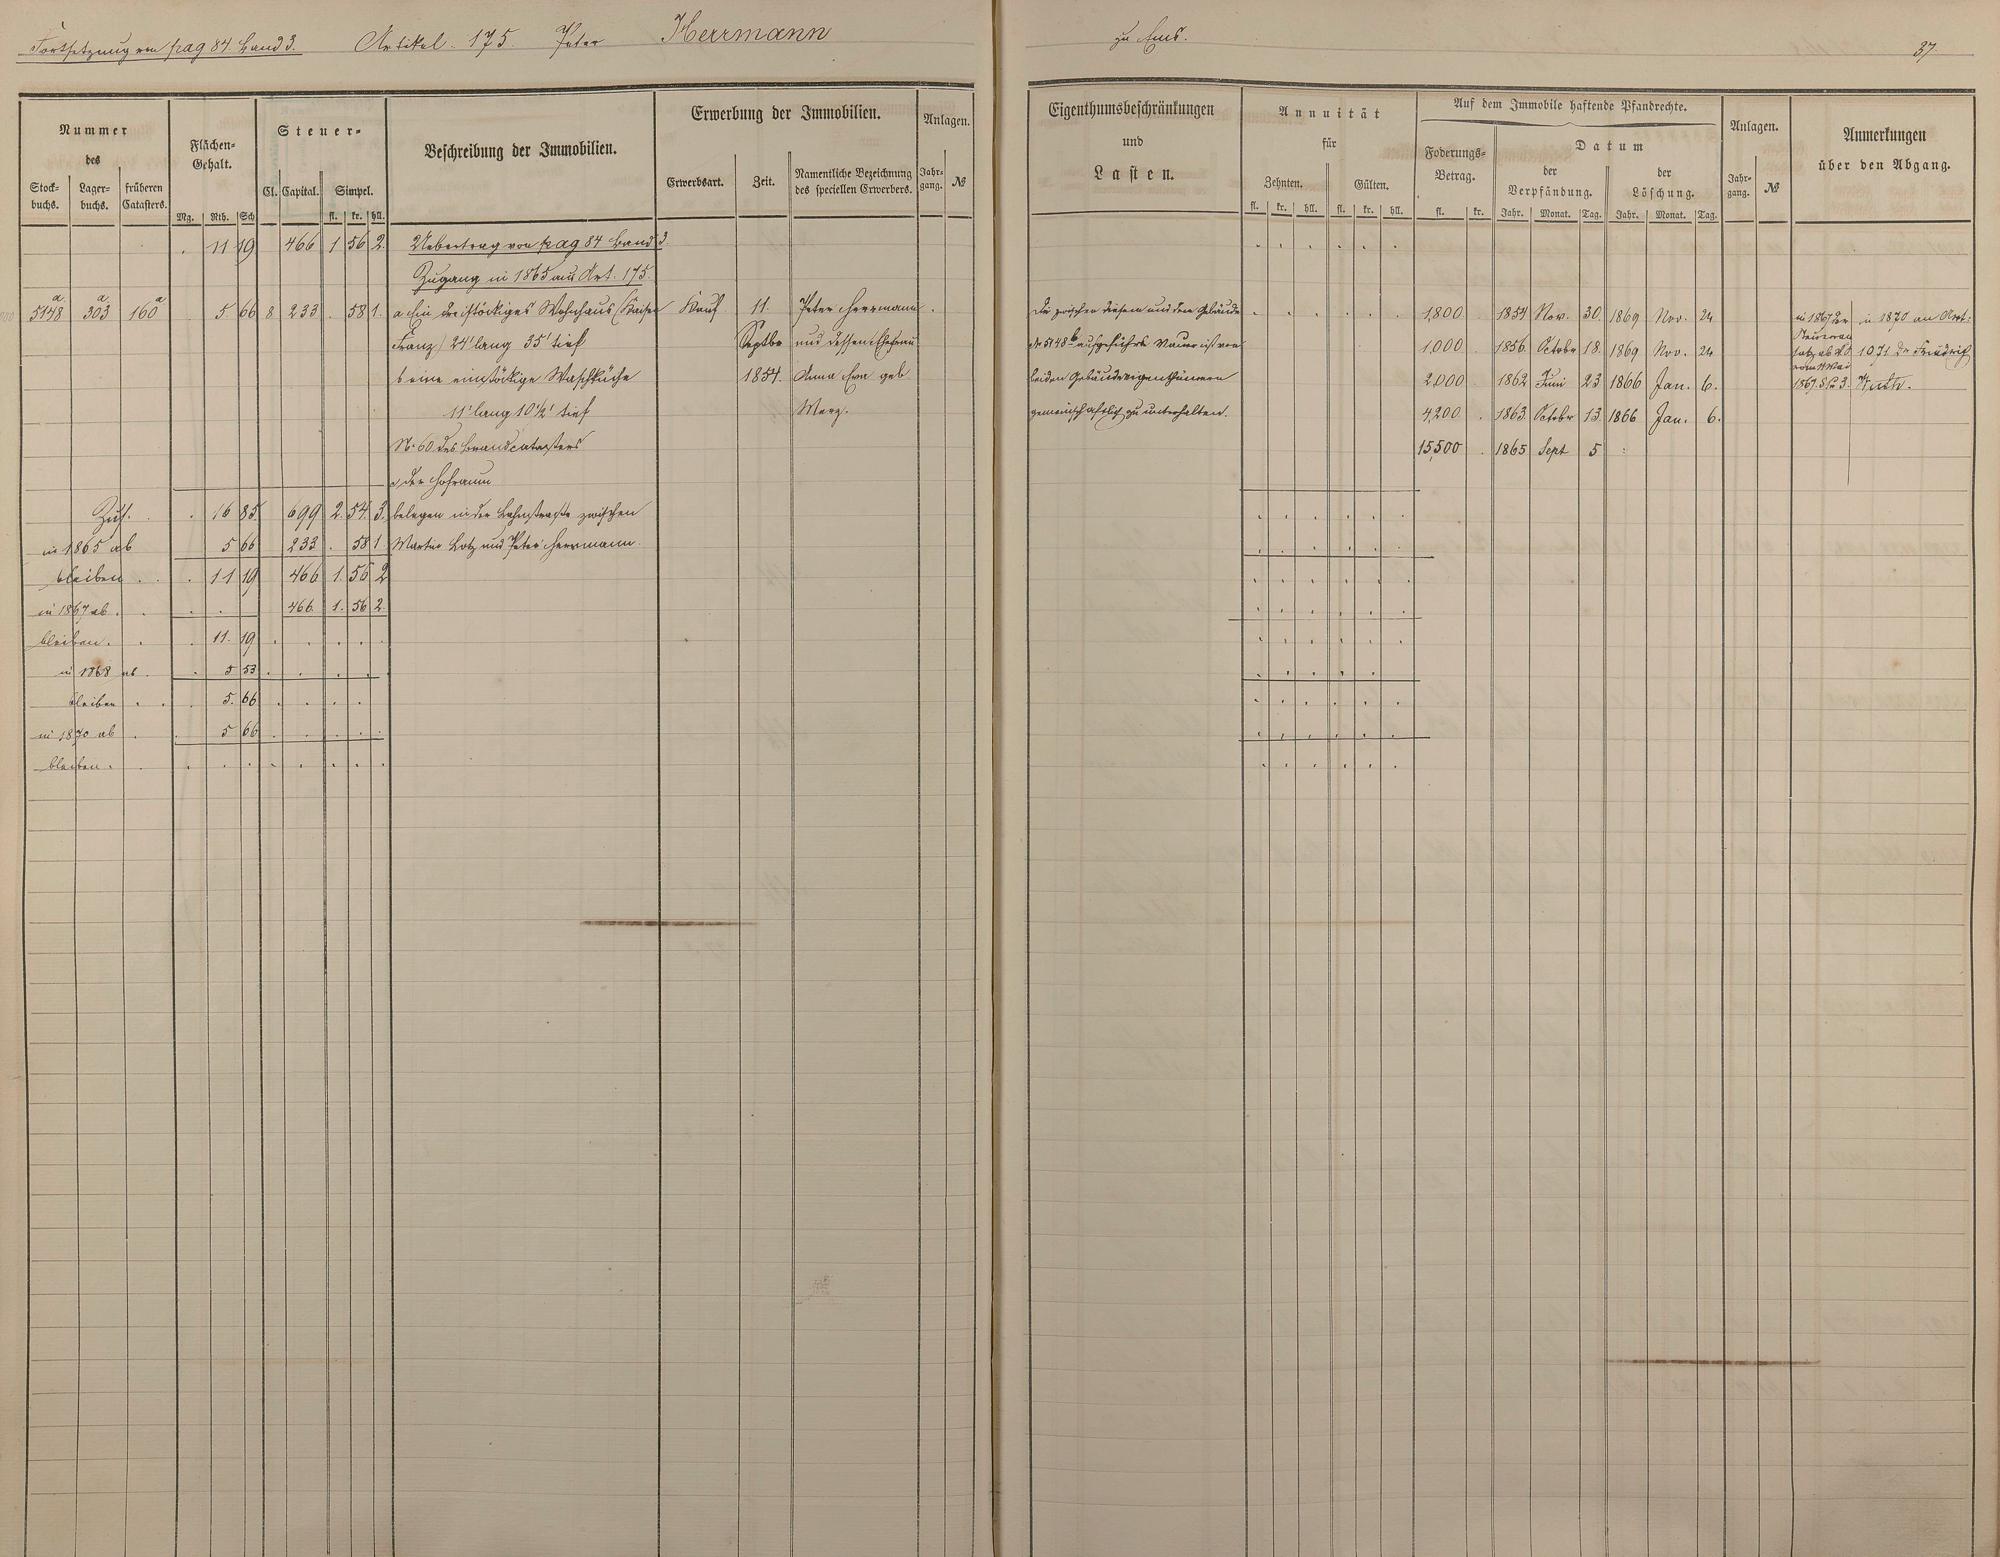 Fortsetzung von pag 84 Band 3. Artikel. 175. Peter Herrmann zu Ems. 37.
Nummer des
Stockbuchs. Lagerbuchs. früheren Catasters.
Flächen-Gehalt.
Mg. Rth. Sch
Steuer-
Cl. Capital. Simpel.
fl. kr. hll.
Beschreibung der Immobilien.
Erwerbung der Immobilien.
Erwerbsart. Zeit. Namentliche Bezeichnung des speciellen Erwerbers.
Anlagen.
Jahrgang. №
Eigenthumsbeschränkungen
und
Lasten.
Annuität
für
Zehnten. Gülten.
fl. kr. hll. fl. kr. hll.
Auf dem Immobile haftende Pfandrechte.
Foderungs-Betrag.
fl. kr.
Datum
der Verpfändung. der Löschung.
Jahr. Monat. Tag. Jahr. Monat. Tag.
Anlagen.
Jahrgang. №
Anmerkungen
über den Abgang.
11 19 466 1 56 2. Uebertrag von pag 84 Band 3.
Zugang in 1865 aus Art. 175.
5148 a 303 a 160 a 5. 66 8 233 . 58 1. a Ein dreistöckiges Wohnhaus (Kaiser
Franz) 24' lang 35' tief
b eine einstöckige Waschküche
11' lang 10 1/2' tief
N. 60 des Brandcatasters
c der Hofraum
Zus. 16 85 699 2. 54. 3. belegen in der Bahnstraße zwischen
in 1865 ab 5 66 233 . 58 1 Martin Lotz und Peter Herrmann.
bleiben 11 19 466 1. 56 2
in 1867 ab. 466. 1. 56 2.
bleiben. 11. 19
in 1868 ab. 5 53
bleiben 5. 66
in 1870 ab 5 66
bleiben.
Kauf 11. Septbr 1854. Peter Herrmann
und dessen Ehefrau
Anna Eva geb
Merz.
Die zwischen diesem und dem Gebäude
N 5148 b aufgeführte Mauer ist von
beiden Gebäudeeigenthümern
gemeinschaftlich zu unterhalten.
1,800 . 1854 Nov. 30. 1869 Nov. 24
1,000 . 1856. Octobr 18. 1869 Nov. 24
2,000 . 1862 Juni 23 1866 Jan. 6.
4,200 . 1863. Octobr 13. 1866 Jan. 6.
15,500 . 1865 Sept 5
in 1870 an Art:
1071 Dr Friedrich